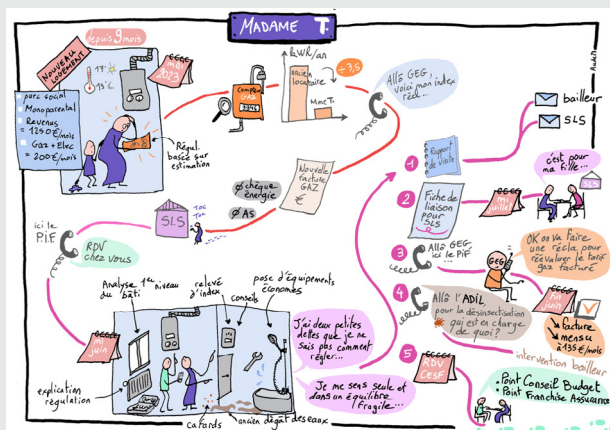 MADAME T.
depuis 9 mois
NOUVEAU
LOGEMENT
mai
2023
19°
19°C
parc social
Monoparental
Revenus
= 1290€/mois
Gaz + Elec
= 200€/mois
Régul.
basée sur
estimation
GAZ
kWh/an
ancien
locataire
Mme T.
÷3,5
Allô GEG,
voici mon index
réel...
Nouvelle
facture
GAZ
€
Ø chèque
énergie
Ø AS
TOC
TOC
SLS
ici le
P.I.F.
RDV
chez vous
mi
juin
Analyse 1er niveau
du bâti
relevé
d'index
conseils
pose d'équipements
économes
explication
régulation
cafards
ancien dégât des eaux
J'ai deux petites
dettes que je ne
sais pas comment
régler...
Je me sens seule et
dans un équilibre
fragile...
1
Rapport
de visite
bailleur
SLS
2
Fiche de
liaison
pour
SLS
mi
juillet
c'est pour
ma fille...
SLS
3
Allô GEG
ici le PIF
...
GEG
OK on va faire
une récla. pour
réévaluer le tarif
gaz facturé
fin
juin
facture
mensu
à 135€/mois
4
Allô l'ADIL
pour la désinsectisation
qui est en charge
de quoi?
intervention bailleur
5
RDV
CESF
• Point Conseil Budget
• Point Franchise Assurance